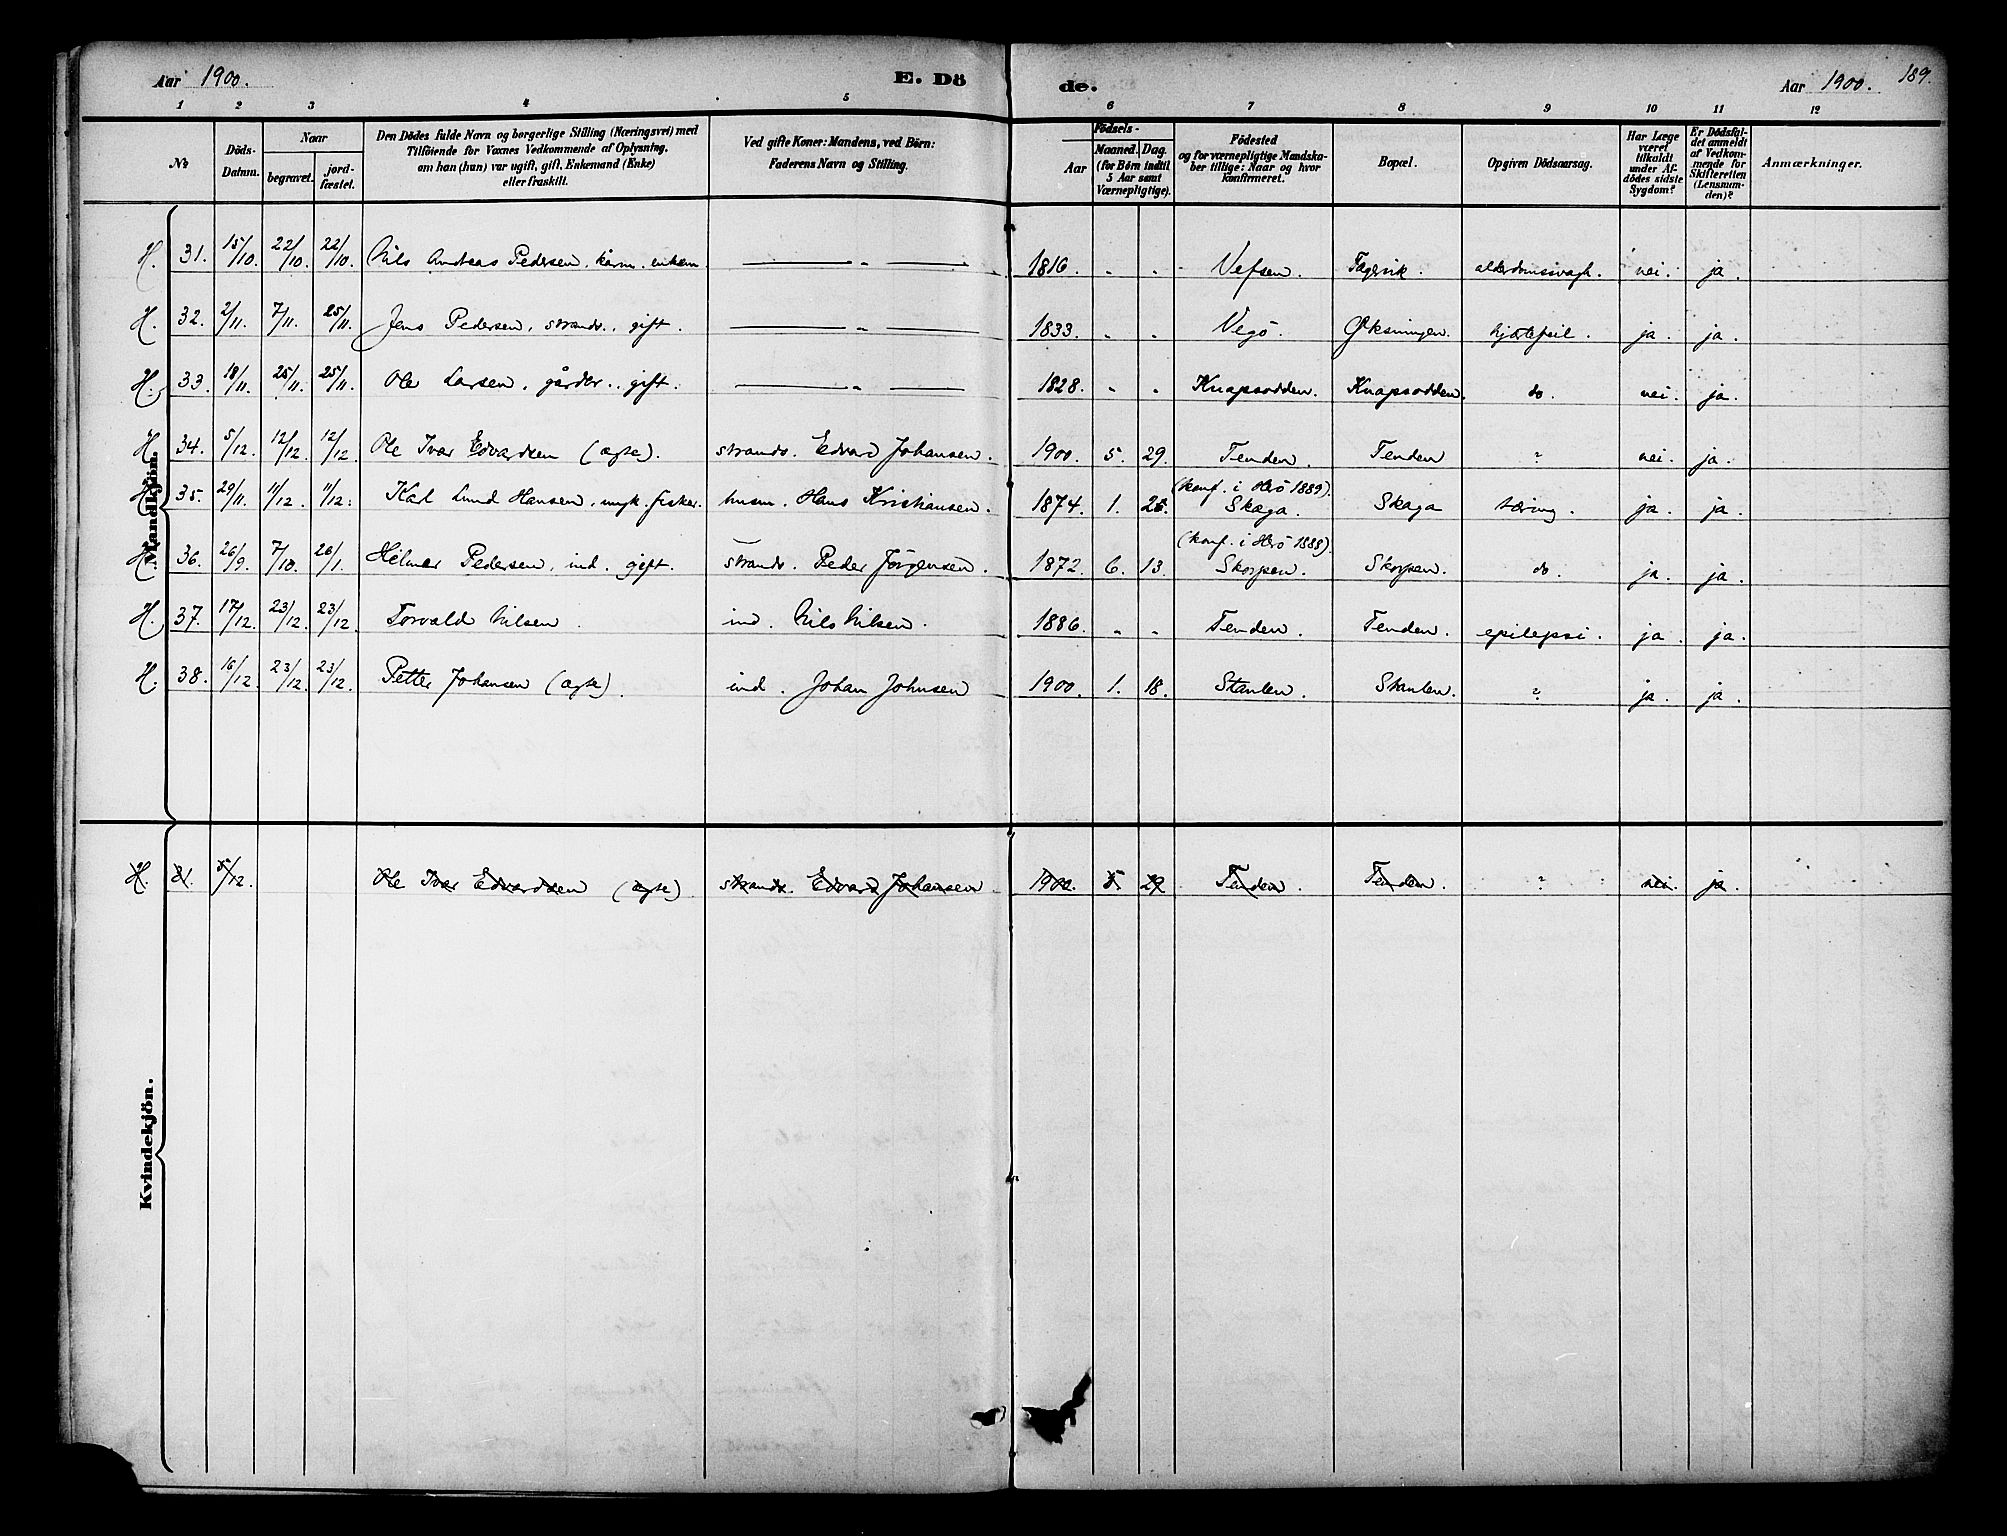 Aar 1900. E. Dö de. Aar 1900. 189.
1 2 3 4 5 6 7 8 9 10 11 12
№ Döds-Datum. Naar begravet. jord-fæstet. Den Dödes fulde Navn og borgerlige Stilling (Næringsvei) med Tilföiende for Voxnes Vedkommende af Oplysning, om han (hun) var ugift, gift, Enkemand (Enke) eller fraskilt. Ved gifte Koner: Mandens, ved Börn: Faderens Navn og Stilling. Födsels- Aar Maaned. Dag. (for Börn indtil 5 Aar samt Værnepligtige). Födested og for værnepligtige Mandskaber tillige: Naar og hvor konfirmeret. Bopæl. Opgiven Dödsaarsag. Har Læge været tilkaldt under Afdödes sidste Sygdom? Er Dödsfaldet anmeldt af Vedkommende for Skifteretten (Lensmanden)? Anmærkninger.
Mandkjön.
H. 31. 15/10. 22/10. 22/10. Nils Andreas Pedersen, kårm. enkem. — " — 1816. " " Vefsen. Fagervik. alderdomssvagh. nei. ja.
H. 32. 2/11. 7/11. 25/11. Jens Pedersen, strands., gift. — " — 1833. " " Vegö. Öksningen. hjærtefeil. ja. ja.
H. 33. 18/11. 25/11. 25/11. Ole Larsen, gårdbr., gift. — " — 1828. " " Knapsodden. Knapsodden. do. nei. ja.
H. 34. 5/12. 12/12. 12/12. Ole Ivar Edvardsen (ægte). strands. Edvard Johansen. 1900. 5. 29. Tenden. Tenden ? nei. ja.
H. 35. 29/11. 11/12. 11/12. Karl Lund Hansen, ungk. fisker. husm. Hans Kristiansen. 1874. 1. (konf. i Herö 1889). Skaga. Skaga tæring. ja. ja.
H. 36. 26/9. 7/10. 26/1. Hilmar Pedersen, ind. gift. strands. Peder Jörgensen. 1872. 6. 13. (konf. i Herö 1888). Skorpen. Skorpen. do. ja. ja.
H. 37. 17/12. 23/12. 23/12. Torvald Nilsen. ind. Nils Nilsen. 1886. " " Tenden. Tenden. epilepsi. ja. ja.
H. 38. 16/12. 23/12. 23/12. Petter Johansen (ægte). ind. Johan Johnsen 1900. 1. 18. Stanlen. Stanlen. ? ja. ja.
Kvindekjön.
H. 21. 5/12. Ole Ivar Edvardsen (ægte) strands. Edvard Johansen 1900. 5. 29 Tenden. Tenden. ? nei. ja.